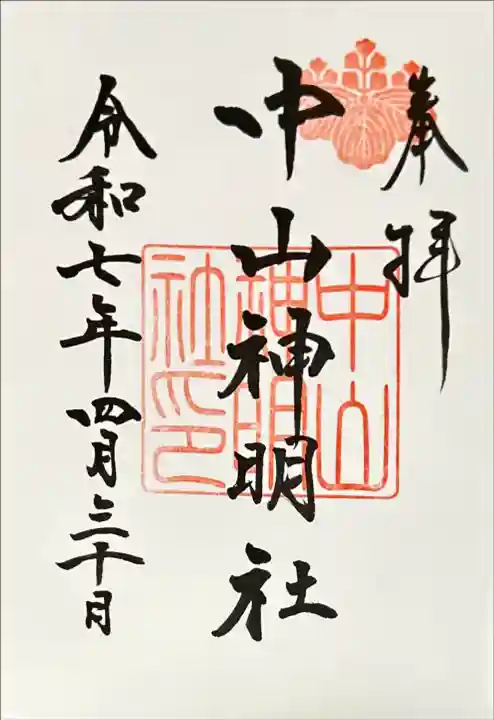 奉拝
中山神明社
中山
神明
社印
令和七年四月三十日